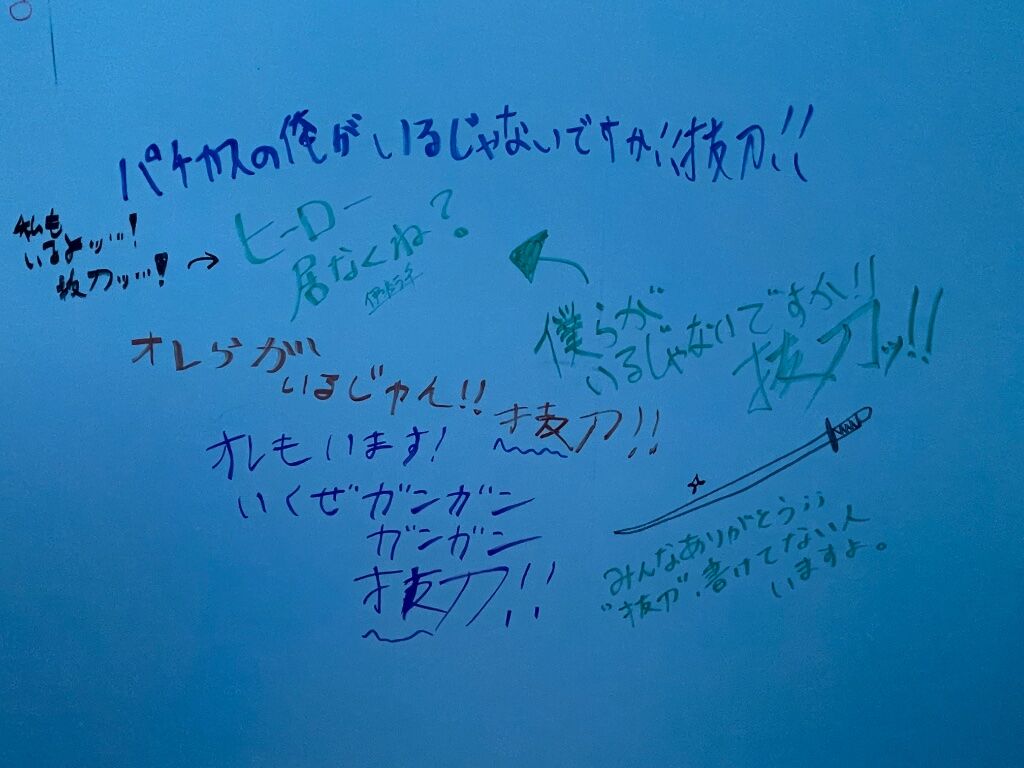 パチカスの俺がいるじゃないですか!!抜刀!!
私も
いるよッ…!
抜刀ッ…!
→
ヒーロー
居なくね?
僕らが
いるじゃないですか!!
抜刀ッ!!
オレらがい
いるじゃん!!
抜刀!!
オレもいます!
いくぜガンガン
ガンガン
抜刀!!
みんなありがとう;;
"抜刀"、書けてない人
いますよ。